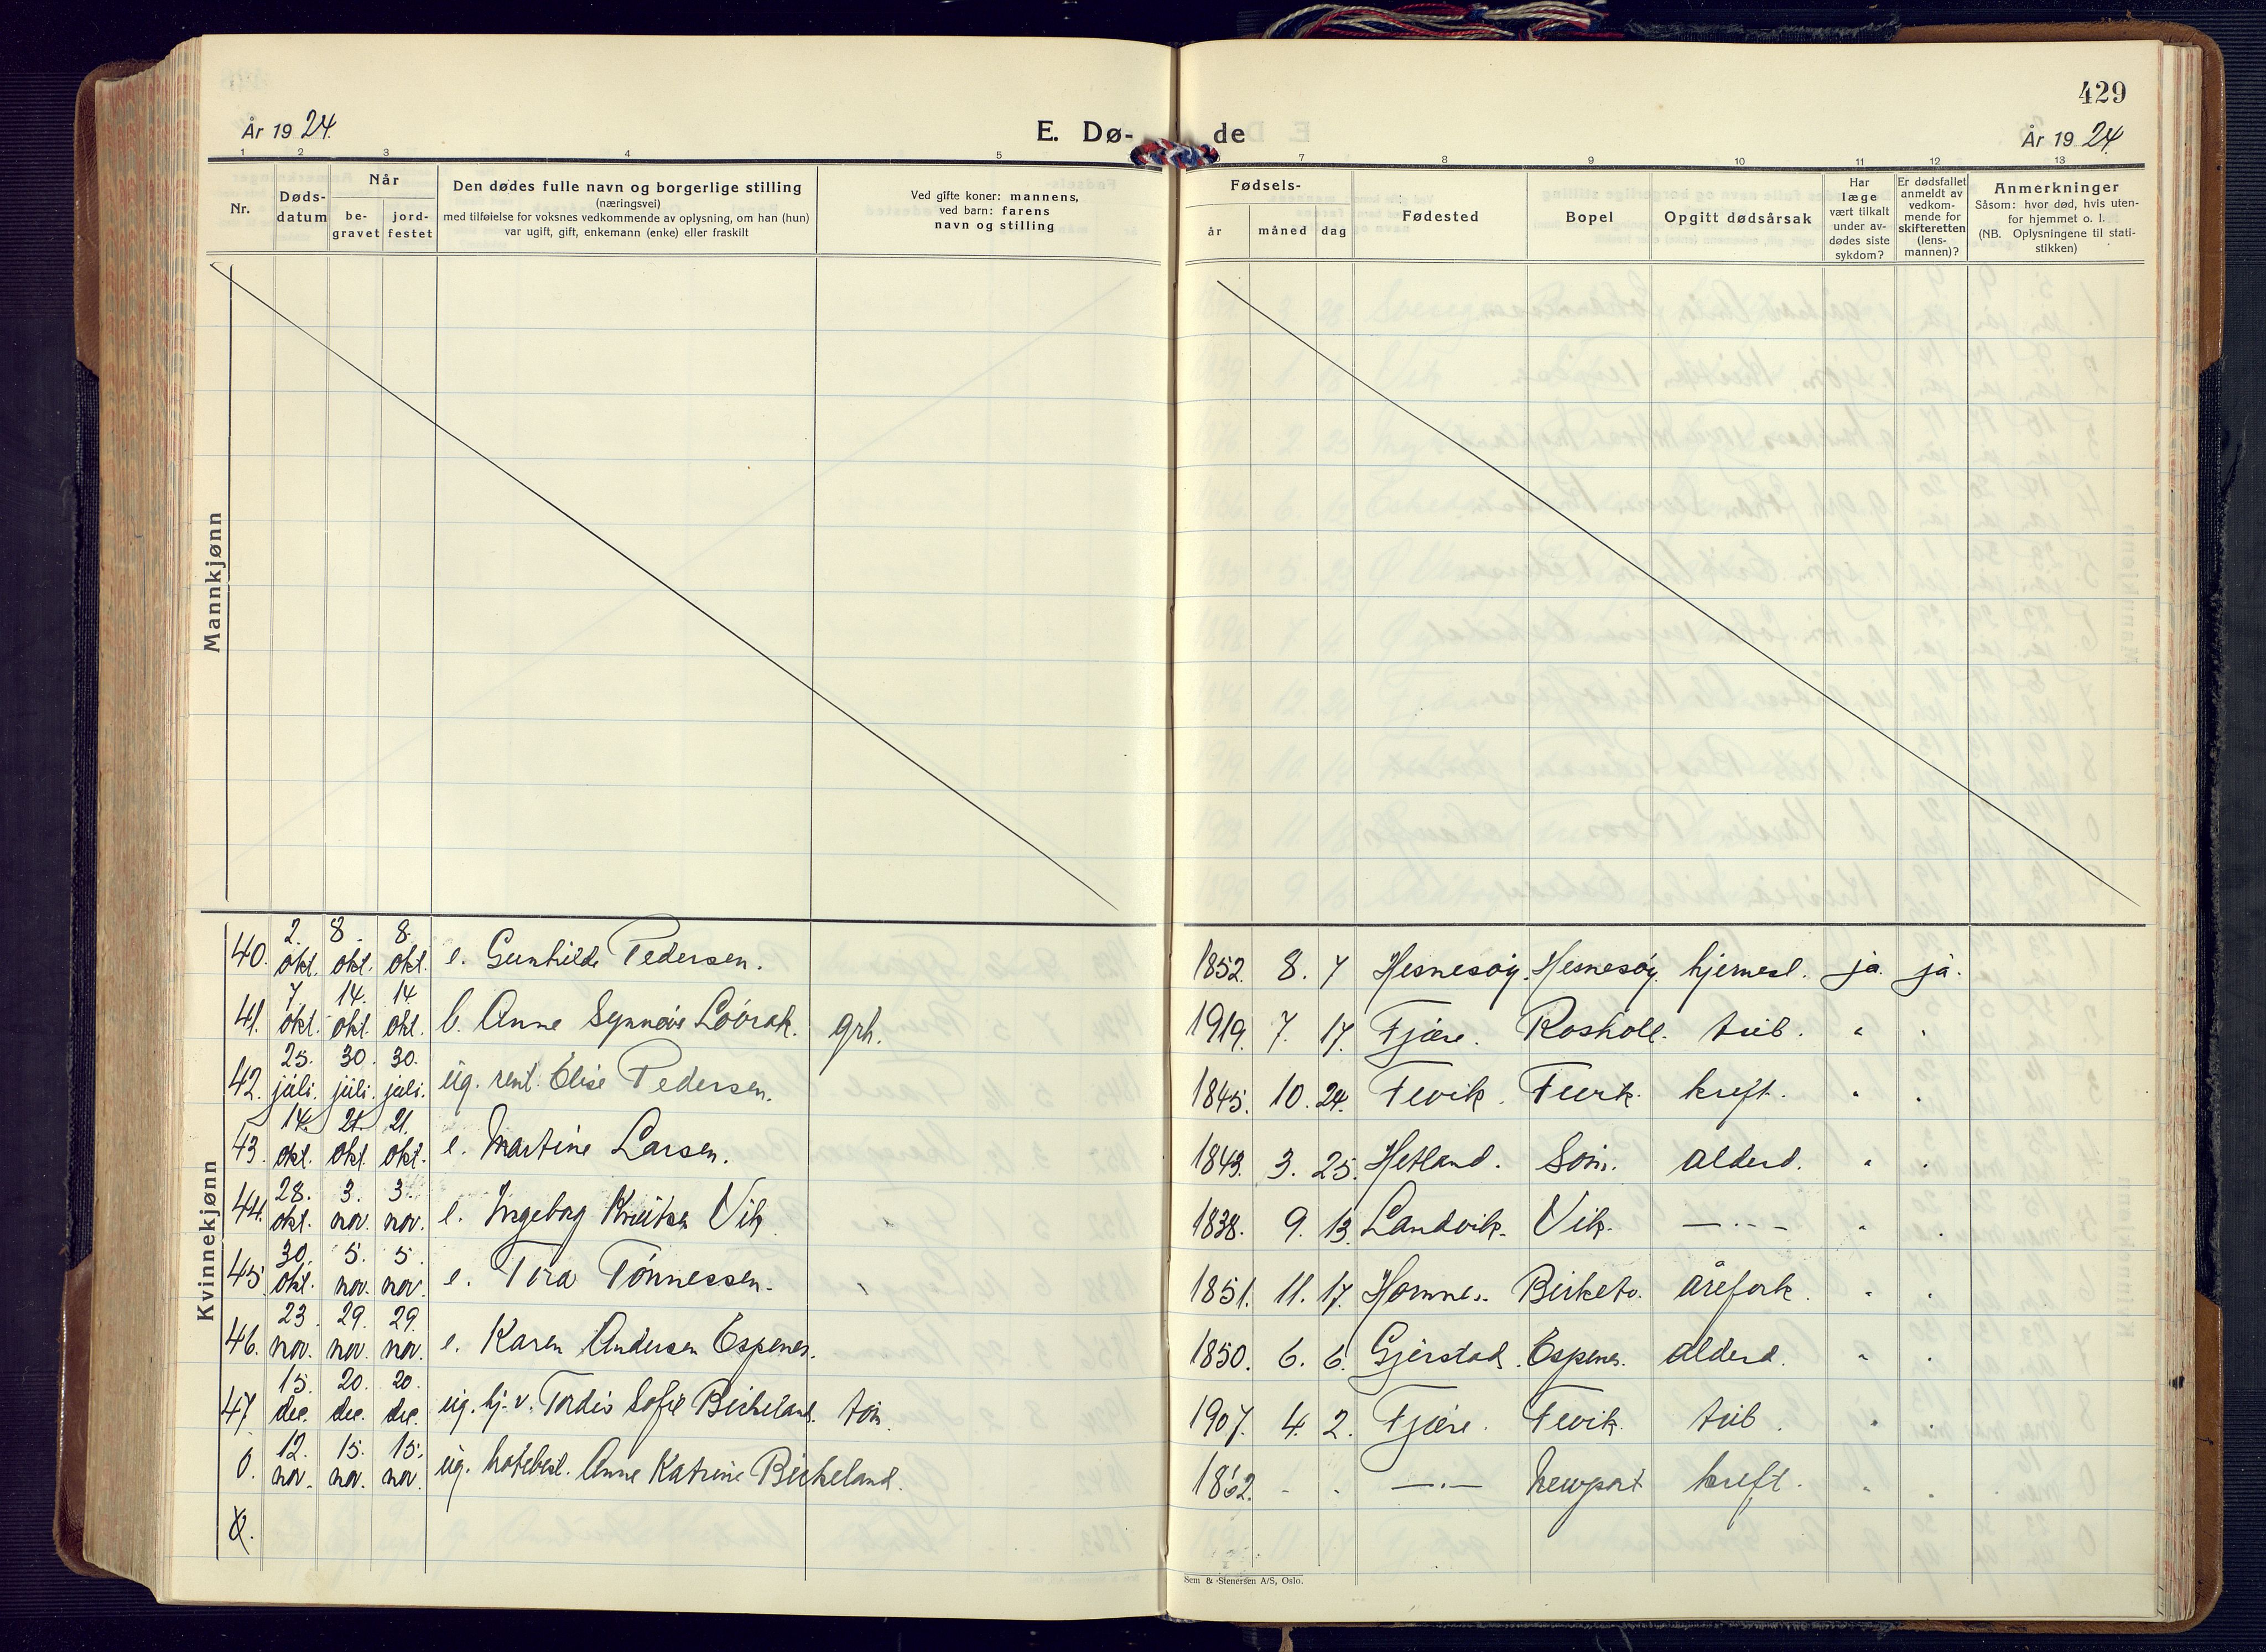 429
År 1924. E. Dø- de År 1924.
1 2 3 4 5 7 8 9 10 11 12 13
Nr. Døds-datum Når be-gravet jord-festet Den dødes fulle navn og borgerlige stilling (næringsvei) med tilføielse for voksnes vedkommende av oplysning, om han (hun) var ugift, gift, enkemann (enke) eller fraskilt Ved gifte koner: mannens, ved barn: farens navn og stilling Fødsels- år måned dag Fødested Bopel Opgitt dødsårsak Har læge vært tilkalt under av-dødes siste sykdom? Er dødsfallet anmeldt av vedkom-mende for skifteretten (lens-mannen)? Anmerkninger Såsom: hvor død, hvis uten-for hjemmet o. l. (NB. Oplysningene til stati-stikken)
Mannkjønn
Kvinnekjønn
40. 2. okt. 8. okt. 8. okt. e. Gunhilde Pedersen. 1852. 8. 7 Hesnesøy. Hesnesøy. hjernesl. ja. ja.
41. 7. okt. 14. okt. 14. okt. b. Anne Synnøve grh. 1919. 7. 17. Fjære. Rosholt. tub. " "
42. 25. juli. 30. juli. 30. juli. ug. rent. Elise Pedersen. 1845. 10. 24. Fevik. Fevik. kreft. " "
43. 14. okt. 21. okt. 21. okt. e. Martine Larsen. 1843. 3. 25. Hetland. Søm. alderd. " "
44. 28. okt. 3. nov. 3. nov. e. Ingeborg Vik. 1838. 9. 13. Landvik. Vik. — . - - " "
45. 30. okt. 5. nov. 5. nov. e. Tora Tønnessen. 1851. 11. 17. Homnes. Birketv. årefork. " "
46. 23. nov. 29. nov. 29. nov. e. Karen Andersen Espenes. 1850. 6. 6. Gjerstad. Espenes. alderd. " "
47. 15. dec. 20. dec. 20. dec. ug. hj. v. Tordis Sofie Birkeland. tøm. 1907. 4. 2. Fjære. Fevik. tub. " "
0. 12. nov. 15. nov. 15. nov. ug. hotelbest. Anne Katrine Birkeland. 1862. - - —.— Newport kreft. " "
Sem & Stenersen A/S, Oslo.